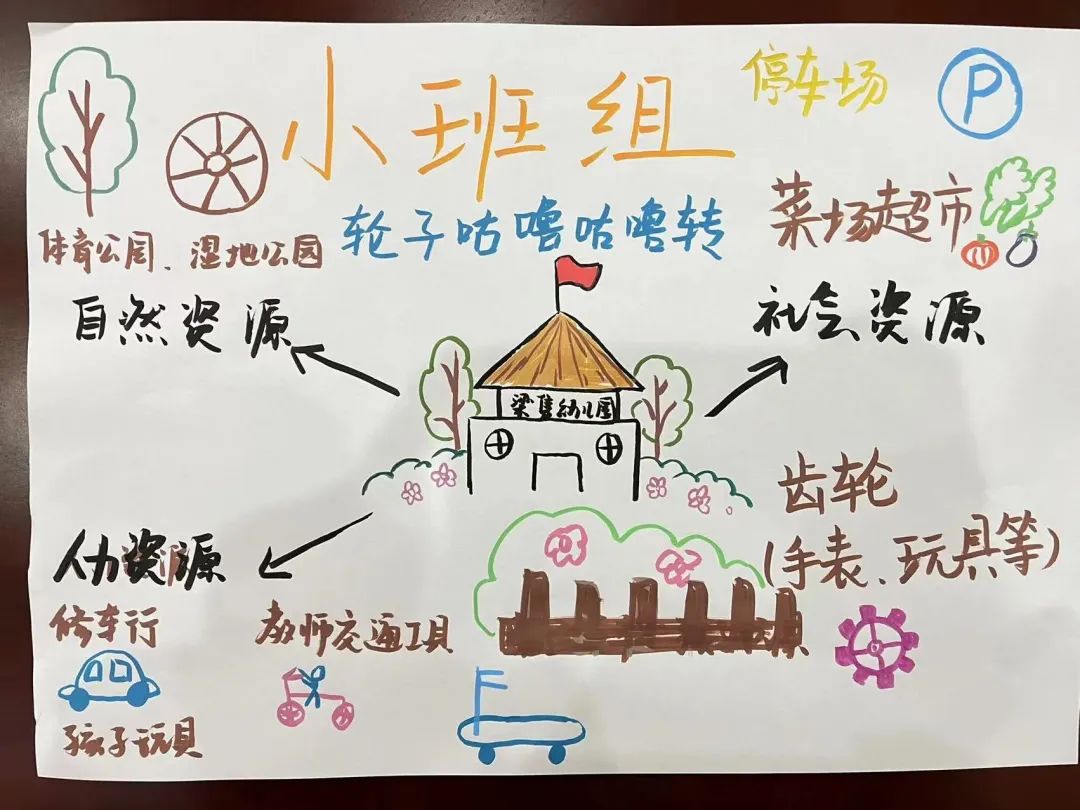 小班组
停车场
P
轮子咕噜咕噜转
菜场超市
体育公园、湿地公园
自然资源
社会资源
梁隻幼儿园
齿轮
(手表、玩具等)
人力资源
修车行
教师交通工具
孩子玩具